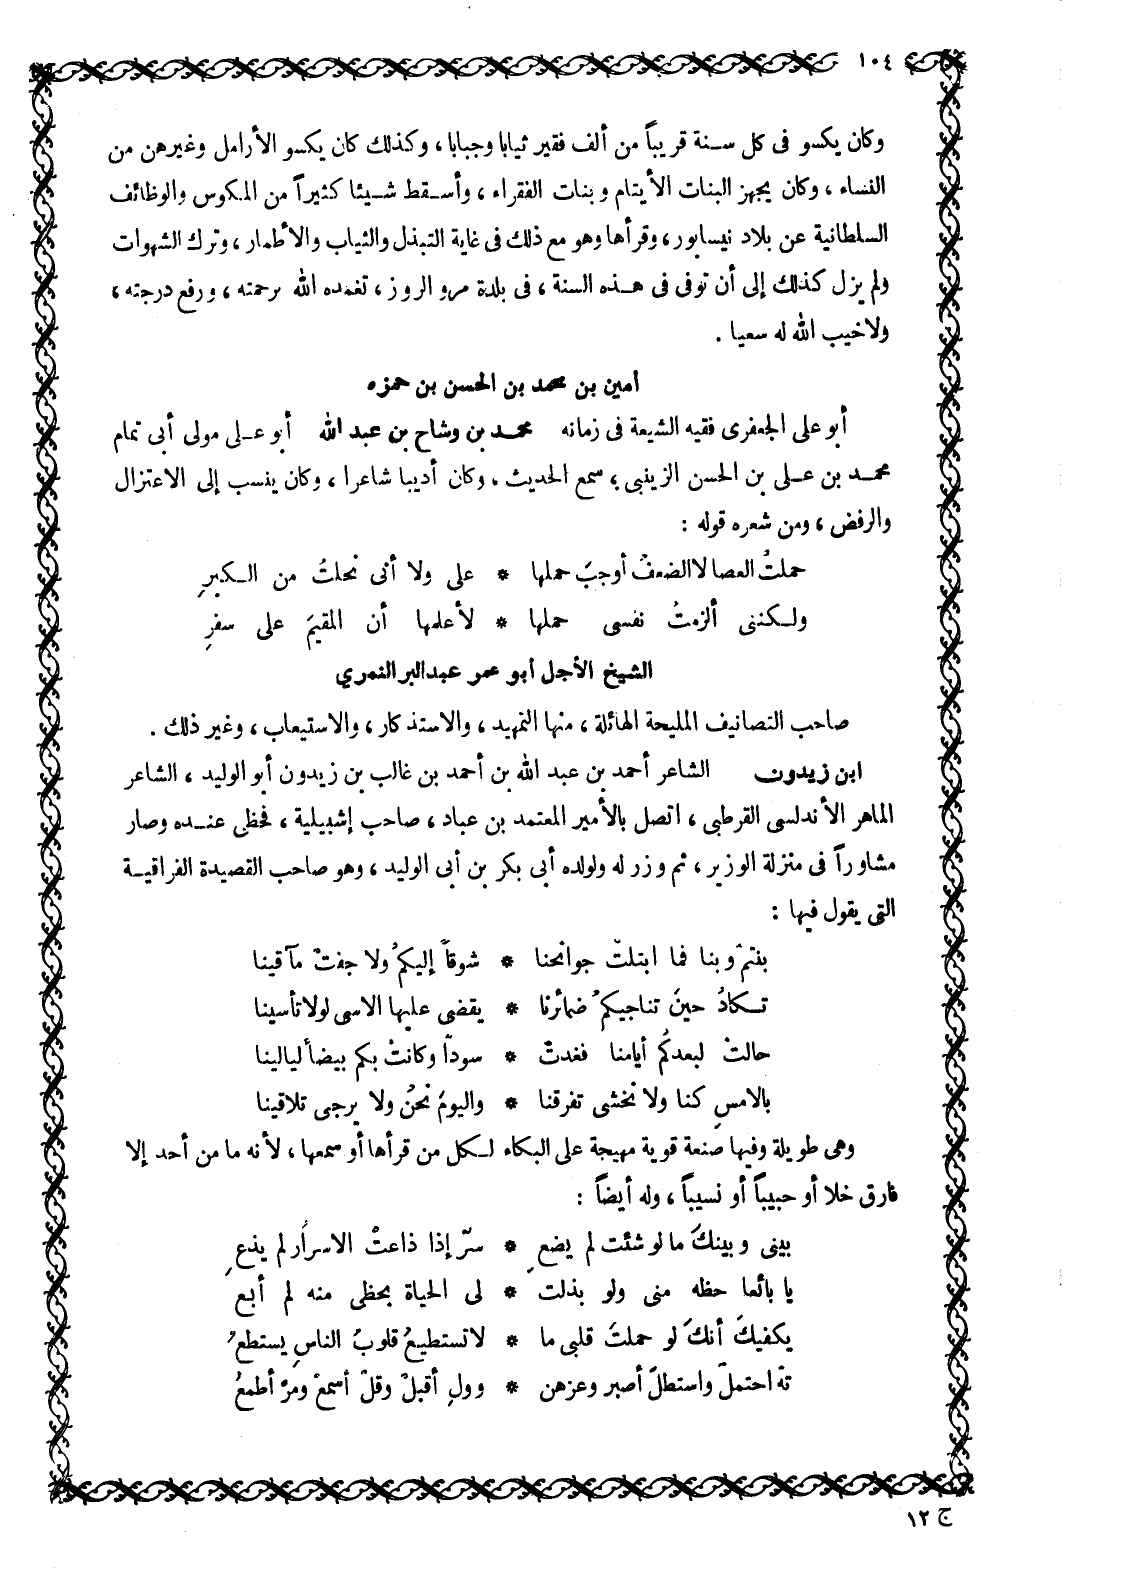 ١٠٤
وكان يكسو فى كل سنة قريباً من ألف فقير ثيابا وجبابا ، وكذلك كان يكسو الأرامل وغيرهن من
النساء ، وكان يجهز البنات الأيتام وبنات الفقراء ، وأسقط شيئا كثيراً من المكوس والوظائف
السلطانية عن بلاد نيسابور ، وقرأها وهو مع ذلك فى غاية التبذل والثياب والأطمار ، وترك الشهوات
ولم يزل كذلك إلى أن توفى فى هذه السنة ، فى بلدة مرو الروز ، تغمده الله برحمته ، ورفع درجته ،
ولاخيب الله له سعيا .
أمين بن محمد بن الحسن بن حمزه
أبو على الجعفرى فقيه الشيعة فى زمانه محمد بن وشاح بن عبد الله أبو على مولى أبى تمام
محمد بن على بن الحسن الزينبى ، سمع الحديث ، وكان أديبا شاعرا ، وكان ينسب إلى الاعتزال
والرفض ، ومن شعره قوله :
حملتُ العصا لا الضعفُ أوجبَ حملها * على ولا أنى نحلتُ من الكبرِ
ولكننى ألزمتُ نفسى حملها * لأعلمها أن المقيمَ على سفرِ
الشيخ الأجل أبو عمر عبدالبر النمري
صاحب التصانيف المليحة الهائلة ، منها التمهيد ، والاستذكار ، والاستيعاب ، وغير ذلك .
ابن زيدون الشاعر أحمد بن عبد الله بن أحمد بن غالب بن زيدون أبو الوليد ، الشاعر
الماهر الأندلسى القرطبى ، اتصل بالأمير المعتمد بن عباد ، صاحب إشبيلية ، فحظى عنده وصار
مشاوراً فى منزلة الوزير ، ثم وزر له ولولده أبى بكر بن أبى الوليد ، وهو صاحب القصيدة الفراقية
التى يقول فيها :
بنتمْ وبنا فما ابتلتْ جوانحنا * شوقاً إليكمْ ولا جفتْ مآقينا
تكادُ حينَ تناجيكمْ ضمائرنا * يقضى عليها الاسى لولا تأسينا
حالتْ لبعدكُم أيامنا فغدتْ * سوداً وكانتْ بكم بيضاً ليالينا
بالامسِ كنا ولا نخشى تفرقنا * واليومَ نحنُ ولا يرجى تلاقينا
وهى طويلة وفيها صنعة قوية مهيجة على البكاء لكل من قرأها أو سمعها ، لأنه ما من أحد إلا
فارق خلا أو حبيباً أو نسيباً ، وله أيضاً :
بينى وبينكَ ما لو شئت لم يضعِ * سرّ إذا ذاعتْ الاسرار لم يذعِ
يا بائعا حظه منى ولو بذلت * لى الحياة بحظى منه لم أبع
يكفيكَ أنكَ لو حملتَ قلبى ما * لا تستطيعُ قلوبُ الناسِ يستطعُ
تهْ احتملْ واستطلْ أصبر وعزهن * وولِ أقبلْ وقلْ أسمعْ ومرْ أطمعُ
ج ١٢